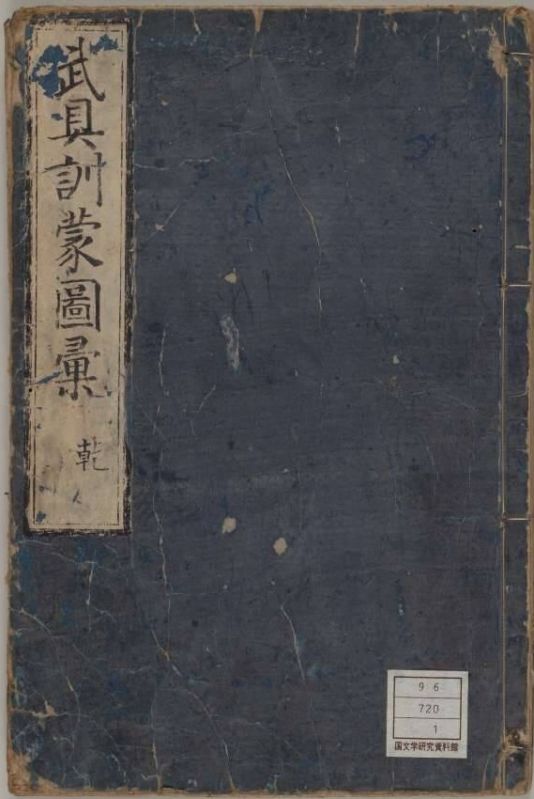 武具訓蒙圖彙
乾
96
720
1
国文学研究資料館